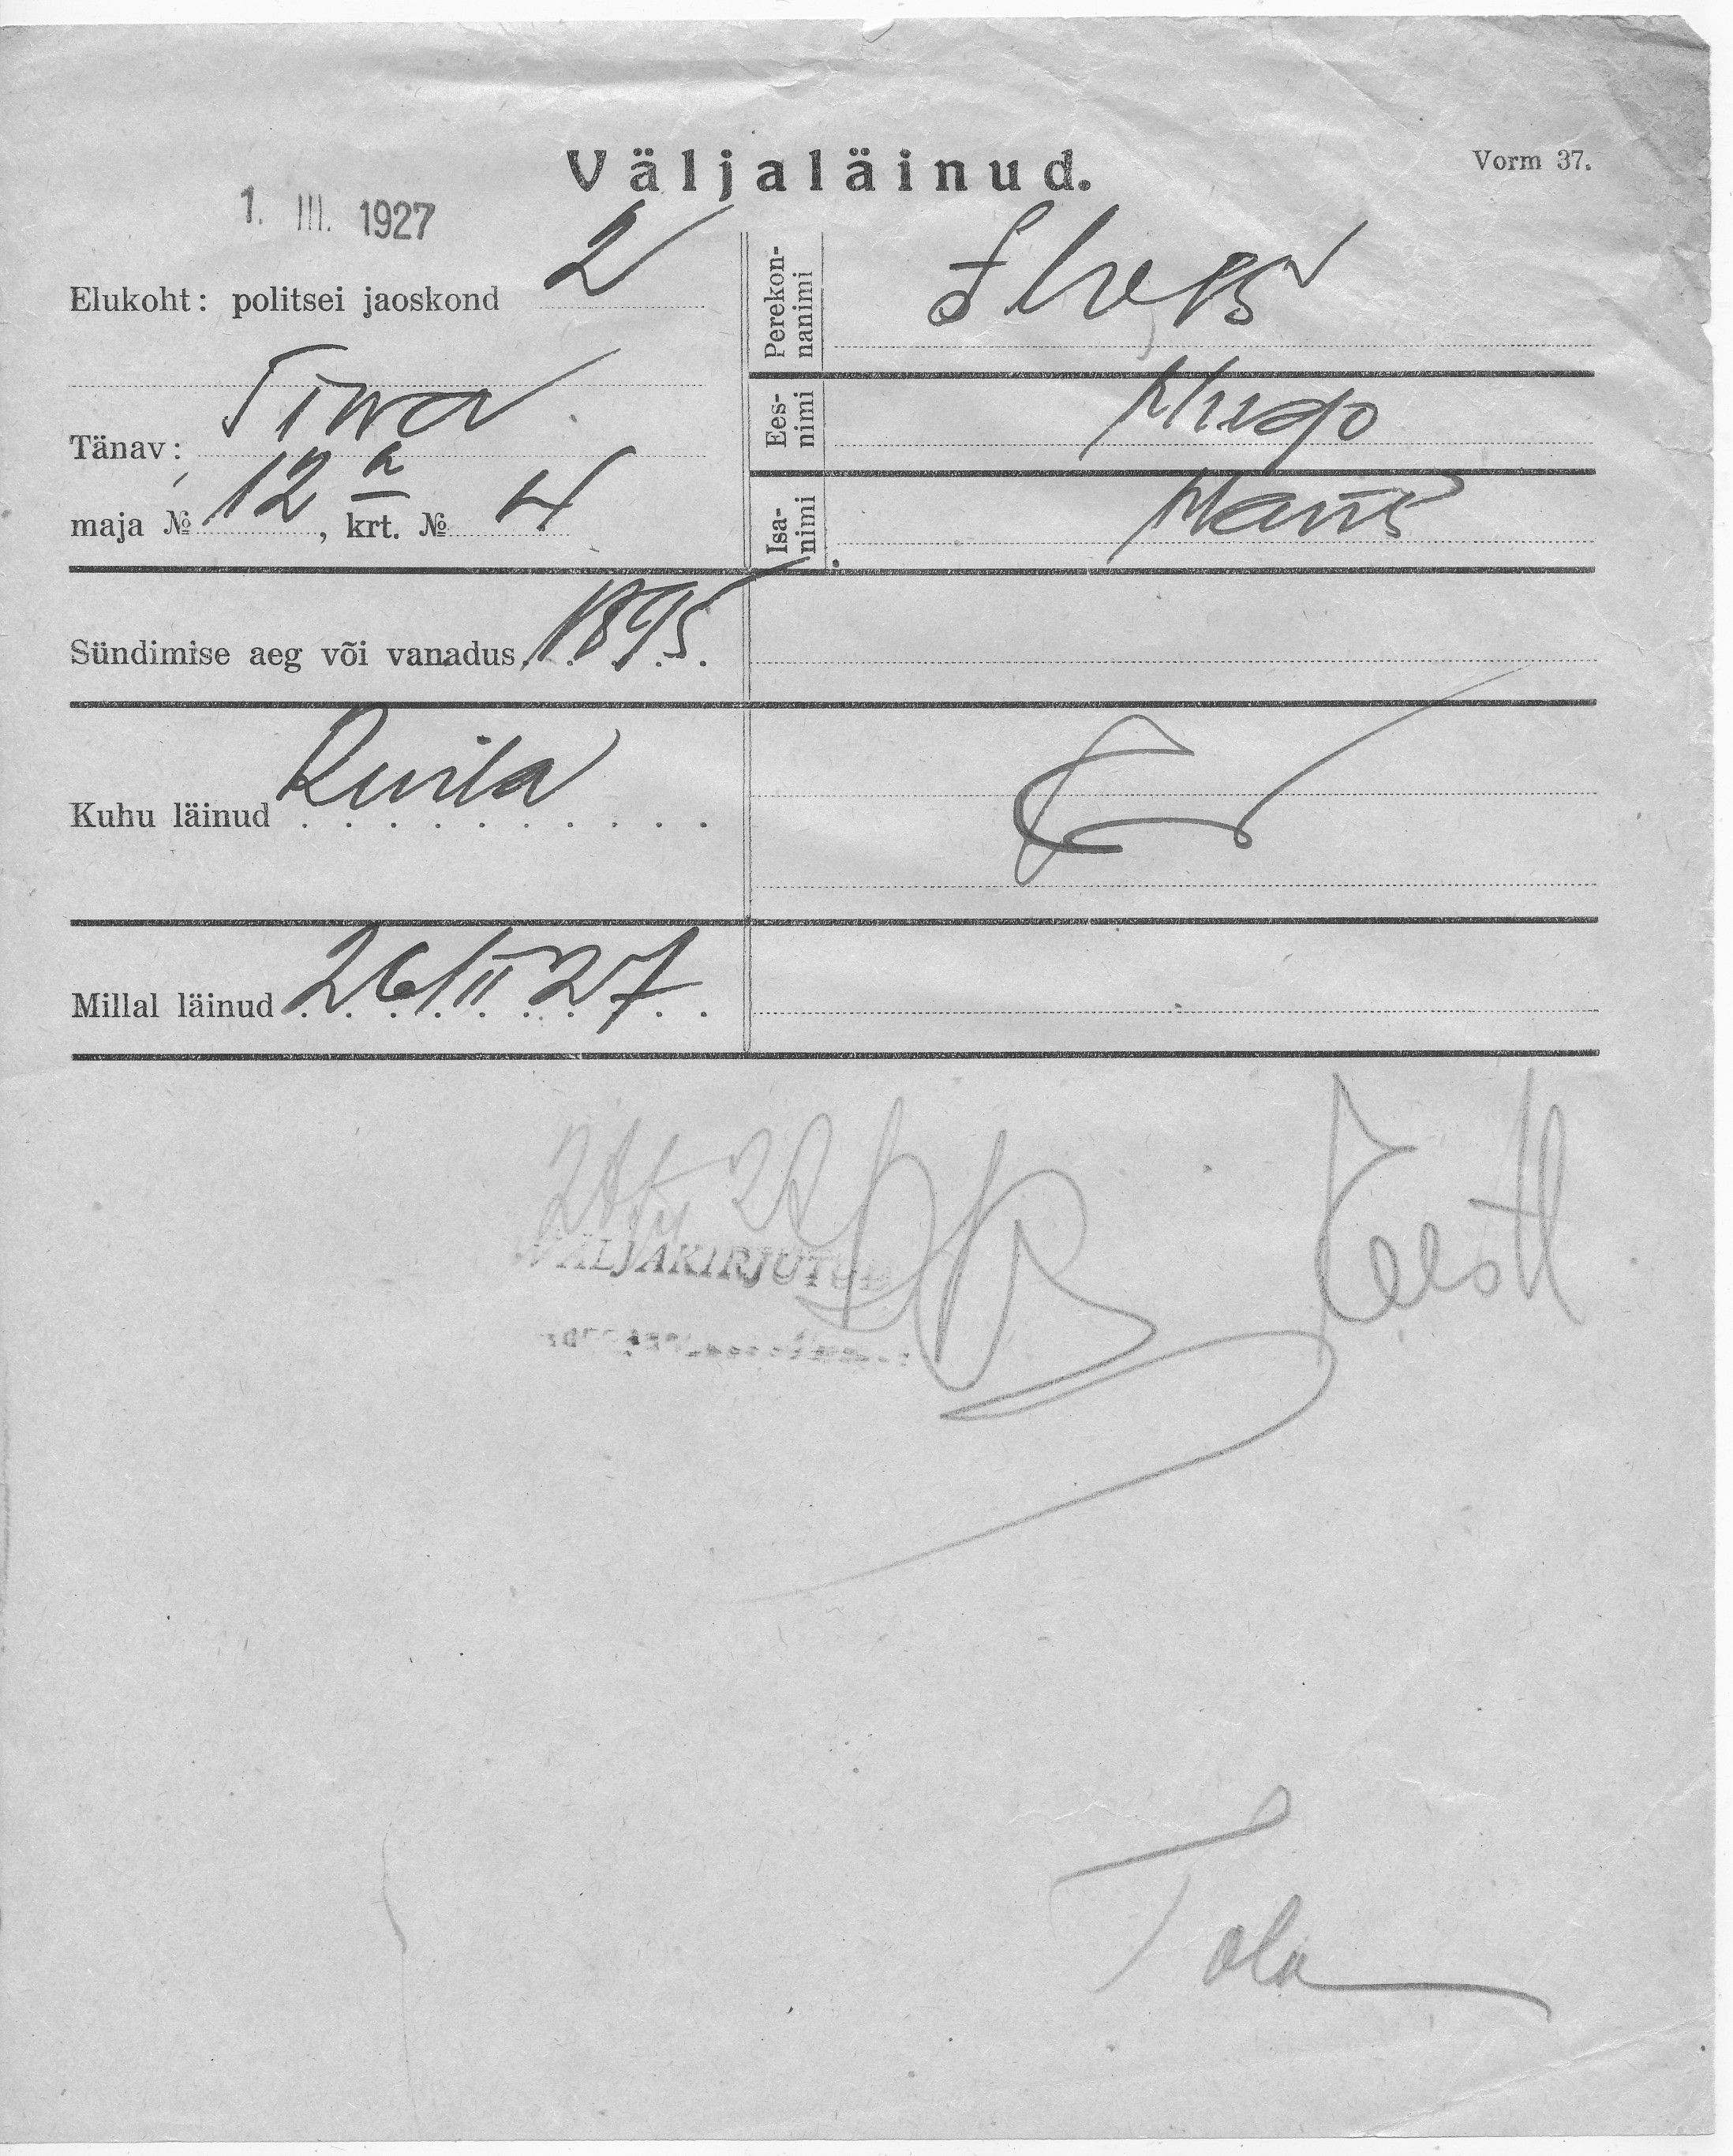 Väljaläinud.
Vorm 37.
1. III. 1927
Elukoht: politsei jaoskond 2
Tänav: Tiwa
maja № 12 a, krt. № 4
Perekon-
nanimi
Ees-
nimi Hugo
Isa-
nimi Hans
Sündimise aeg või vanadus 1895
Kuhu läinud Ruila
Millal läinud 26/II 27
VÄLJAKIRJUTUD
Eestl